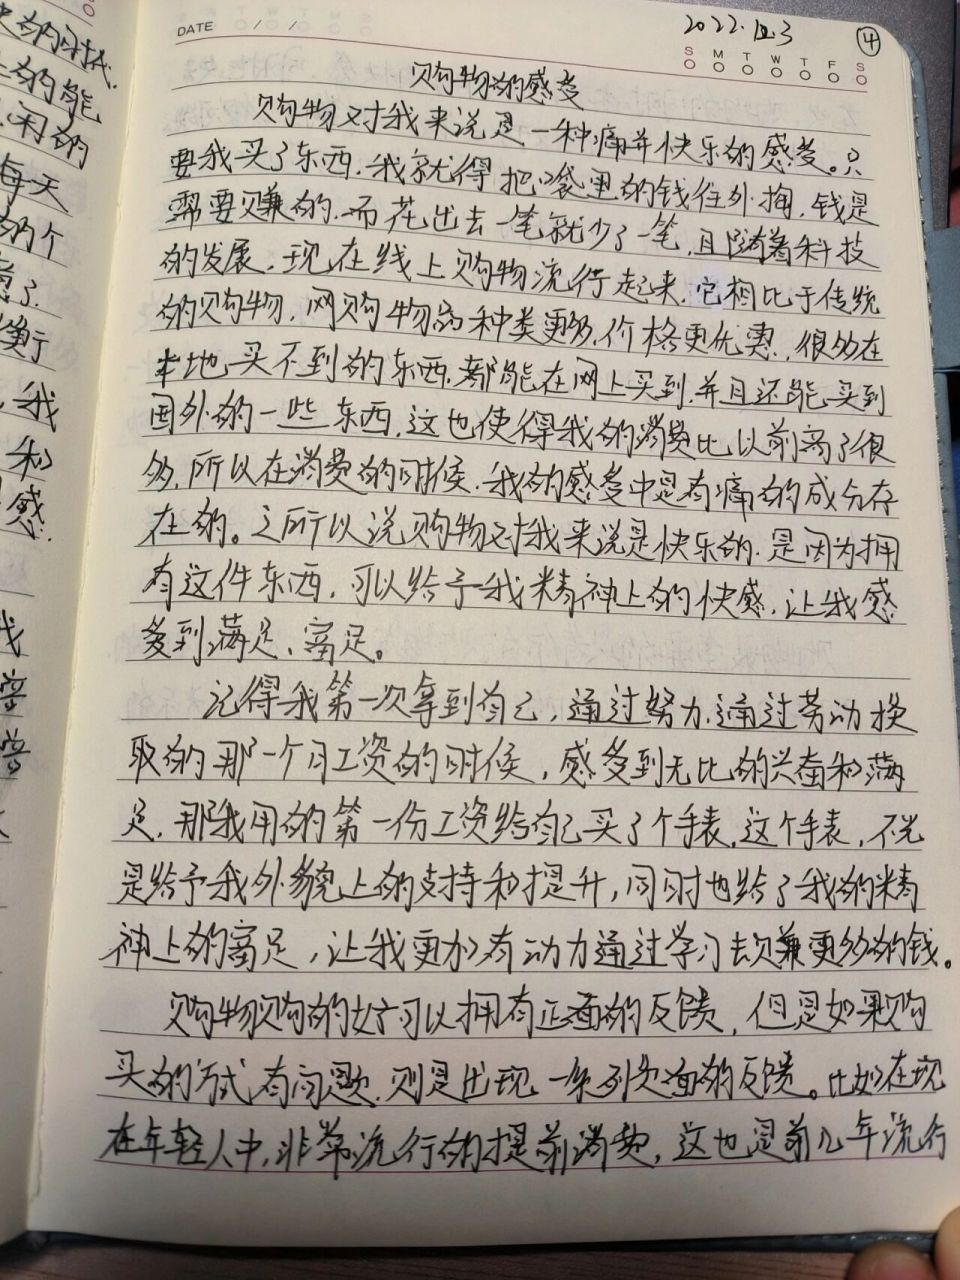 的能
闲的
每天
的个
衡
,我
和
感.
DATE / /
2022.12.3
④
S M T W T F S
购物的感受
购物对我来说是一种痛并快乐的感受。只
要我买了东西,我就得把口袋里的钱往外掏,钱是
需要赚的,而花出去一笔就少了一笔,且随着科技
的发展,现在线上购物流行起来,它相比于传统
的购物,网购物品种类更多,价格更优惠,很多在
本地买不到的东西,都能在网上买到,并且还能买到
国外的一些东西,这也使得我的消费比以前高了很
多,所以在消费的时候,我的感受中是有痛的成分存
在的。之所以说购物对我来说是快乐的,是因为拥
有这件东西,可以给予我精神上的快感,让我感
受到满足、富足。
记得我第一次拿到自己,通过努力,通过劳动换
取的那一个月工资的时候,感受到无比的兴奋和满
足,那我用的第一份工资给自己买了个手表,这个手表,不光
是给予我外貌上的支持和提升,同时也给了我的精
神上的富足,让我更加有动力通过学习去赚更多的钱。
购物购的好可以拥有正面的反馈,但是如果购
买的方式有问题,则是出现一系列负面的反馈。比如在现
在年轻人中,非常流行的提前消费,这也是前几年流行